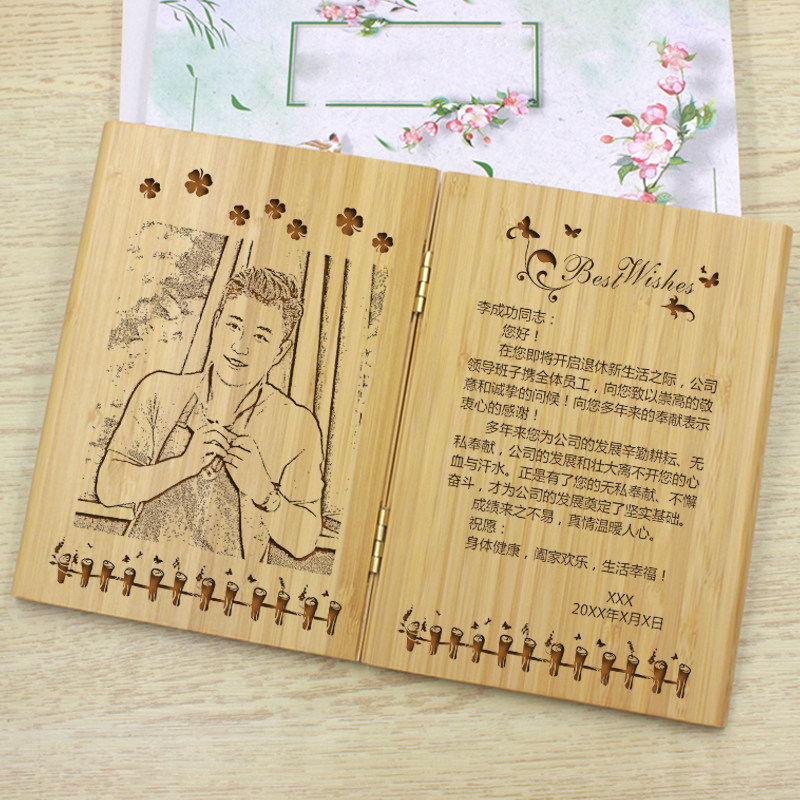 Best Wishes
李成功同志：
您好！
在您即将开启退休新生活之际，公司
领导班子携全体员工，向您致以崇高的敬
意和诚挚的问候！向您多年来的奉献表示
衷心的感谢！
多年来您为公司的发展辛勤耕耘、无
私奉献，公司的发展和壮大离不开您的心
血与汗水。正是有了您的无私奉献、不懈
奋斗，才为公司的发展奠定了坚实基础。
成绩来之不易，真情温暖人心。
祝愿：
身体健康，阖家欢乐，生活幸福！
XXX
20XX年X月X日